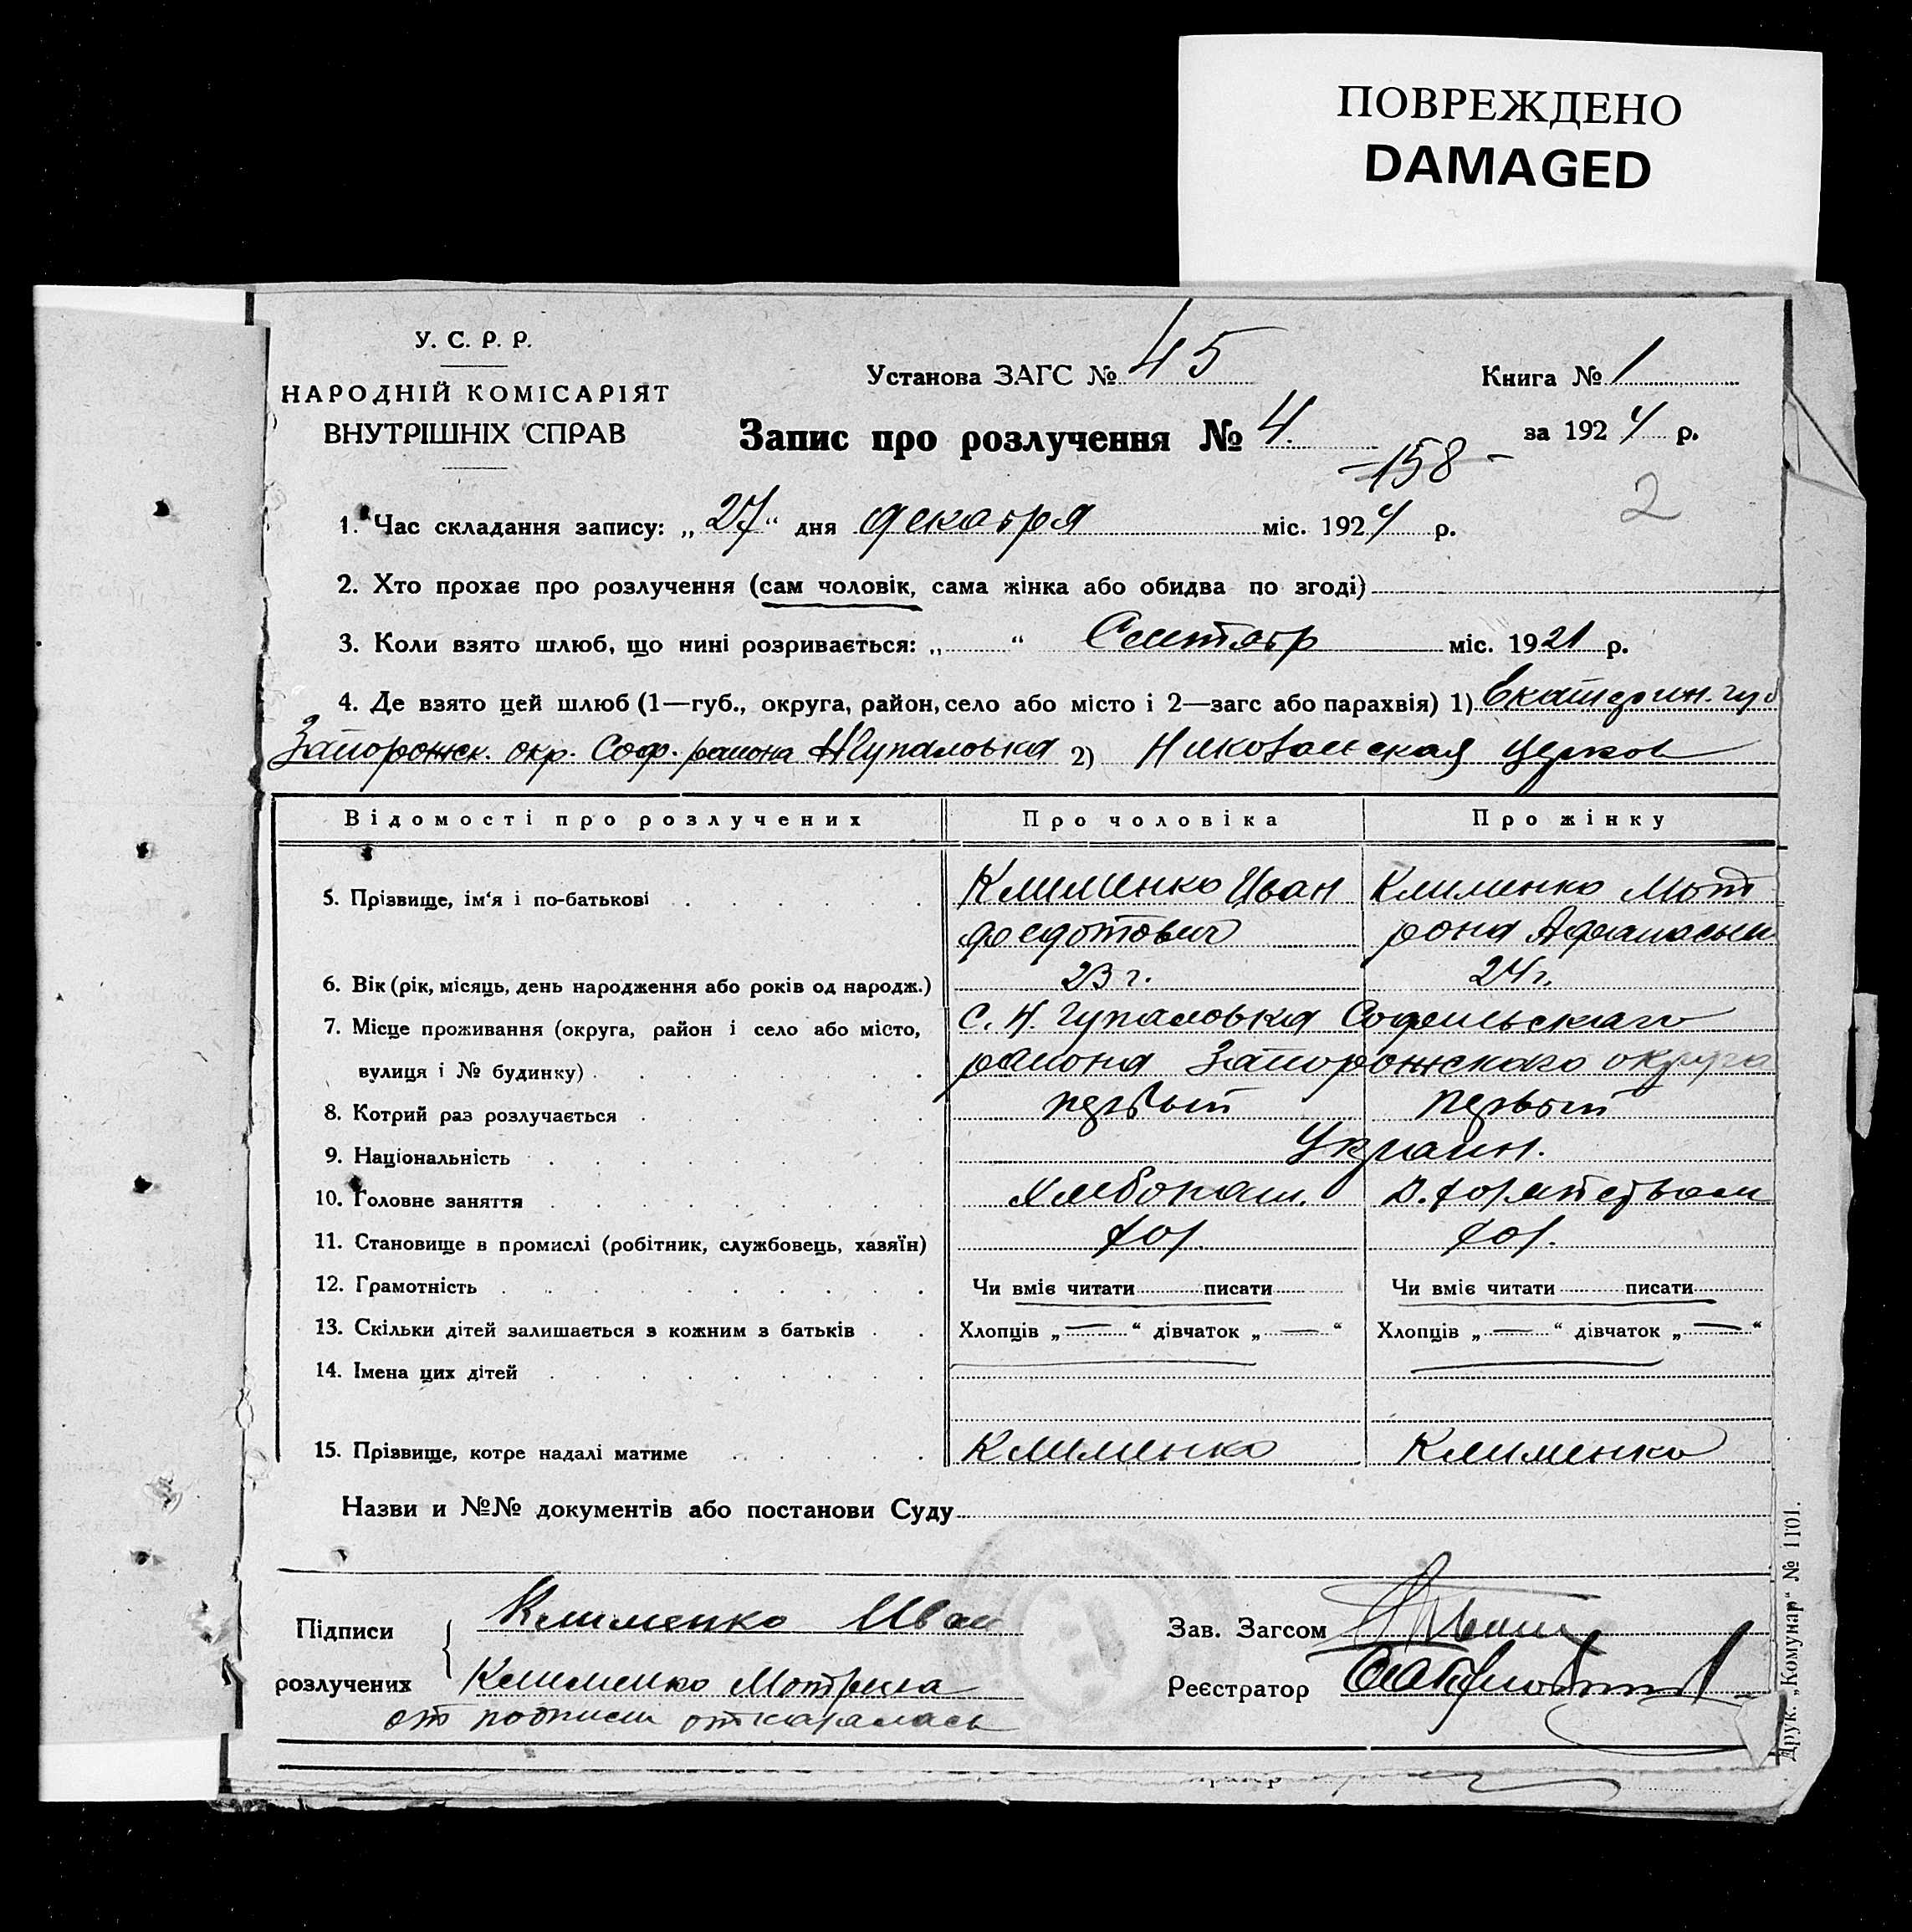 ПОВРЕЖДЕНО
DAMAGED
У. С. Р. Р.
НАРОДНІЙ КОМІСАРІЯТ
ВНУТРІШНІХ СПРАВ
Установа ЗАГС № 45
Книга № 1
Запис про розлучення № 4.
за 1924 р.
-158-
2
1. Час складання запису: „27“ дня декабря міс. 1924 р.
2. Хто прохає про розлучення (сам чоловік, сама жінка або обидва по згоді)
3. Коли взято шлюб, що нині розривається: „ “ Сентябр міс. 1921 р.
4. Де взято цей шлюб (1—губ., округа, район, село або місто і 2—загс або парахвія) 1) Екатерин. губ
Запорожск. окр. Соф. района Н Гупаловка 2) Николаевская церков
Відомості про розлучених Про чоловіка Про жінку
5. Прізвище, ім'я і по-батькові Клименко Иван Клименко Мот
Федотович рона Афанасьев
6. Вік (рік, місяць, день народження або років од народж.) 23 г. 24 г.
7. Місце проживання (округа, район і село або місто, С. Н. Гупаловка Софиевскаго
вулиця і № будинку) района Запорожскаго округа
8. Котрий раз розлучається первый первый
9. Національність Украин.
10. Головне заняття Хлебопаш.
11. Становище в промислі (робітник, службовець, хазяїн)
12. Грамотність Чи вміє читати писати Чи вміє читати писати
13. Скільки дітей залишається з кожним з батьків Хлопців „—“ дівчаток „—“ Хлопців „—“ дівчаток „—“
14. Імена цих дітей
15. Прізвище, котре надалі матиме Клименко Клименко
Назви и №№ документів або постанови Суду
Підписи Клименко Иван Зав. Загсом
розлучених Клименко Мотрина Реєстратор
от подписи отказалась
Друк. „Комунар“ № 1101.